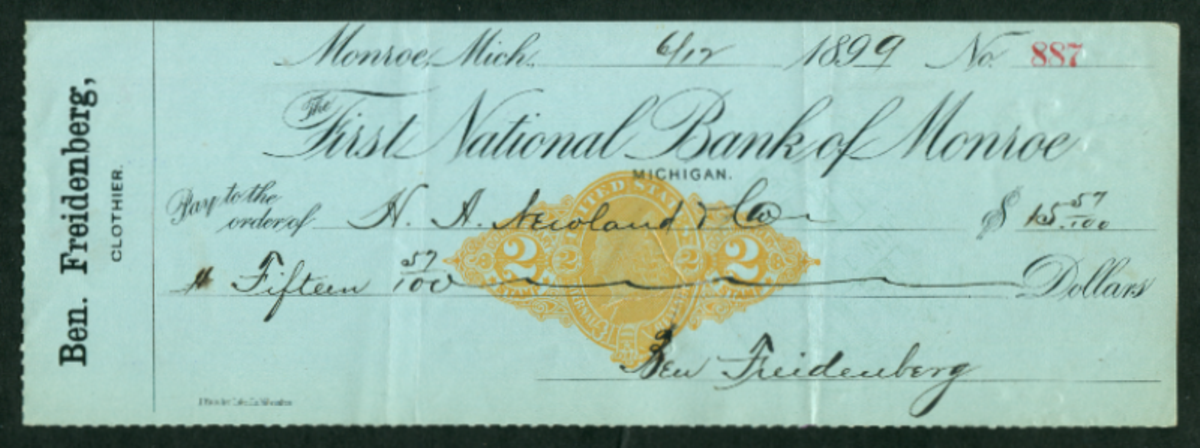 Ben. Freidenberg,
CLOTHIER.
Monroe, Mich. 6/12 1899 No. 887
The First National Bank of Monroe
MICHIGAN.
Pay to the order of H. A. Newland & Co $ 15.57/100
Fifteen 57/100 Dollars
UNITED STATES
2 2 2 2
Ben Freidenberg